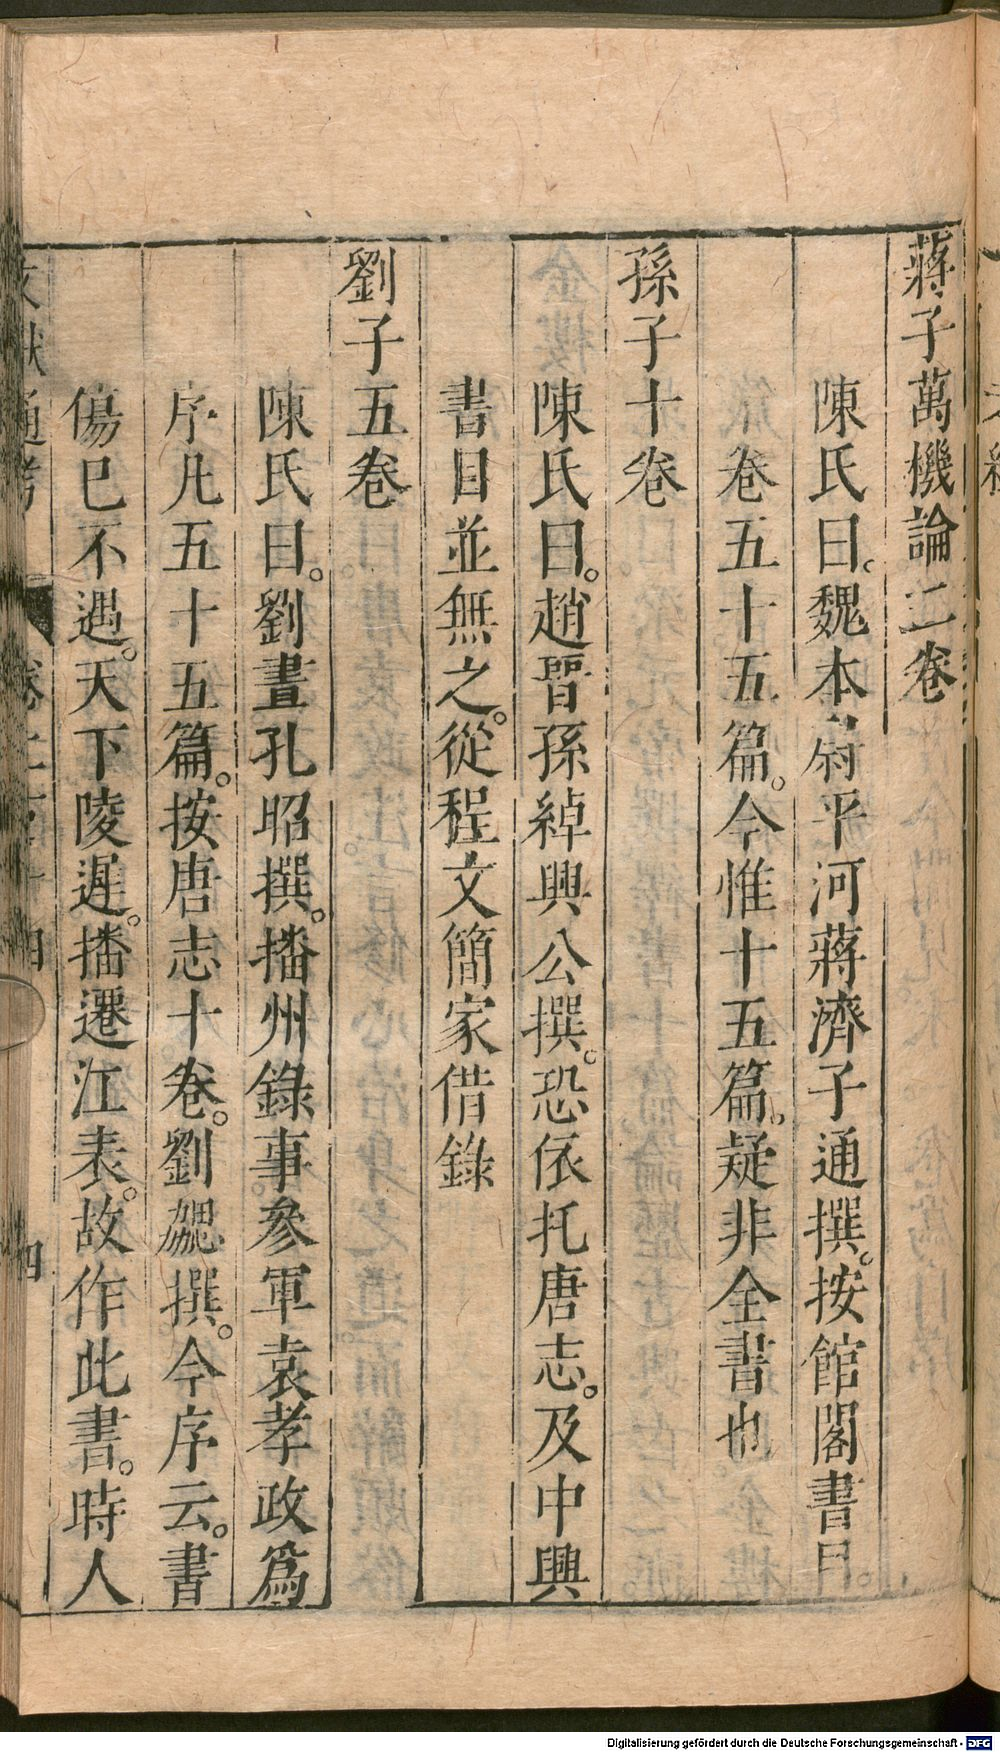 蔣子萬機論二卷
陳氏曰。魏太尉平河蔣濟子通撰。按館閣書目。
卷五十五篇。今惟十五篇。疑非全書也
孫子十卷
陳氏曰。趙晉孫綽興公撰。恐依托唐志。及中興
書目並無之。從程文簡家借錄
劉子五卷
陳氏曰。劉晝孔昭撰。播州錄事參軍袁孝政爲
序凡五十五篇。按唐志十卷。劉勰撰。今序云。書
傷巳不遇。天下陵遲。播遷江表。故作此書。時人
文獻通考 卷二百十四 四
Digitalisierung gefördert durch die Deutsche Forschungsgemeinschaft - DFG